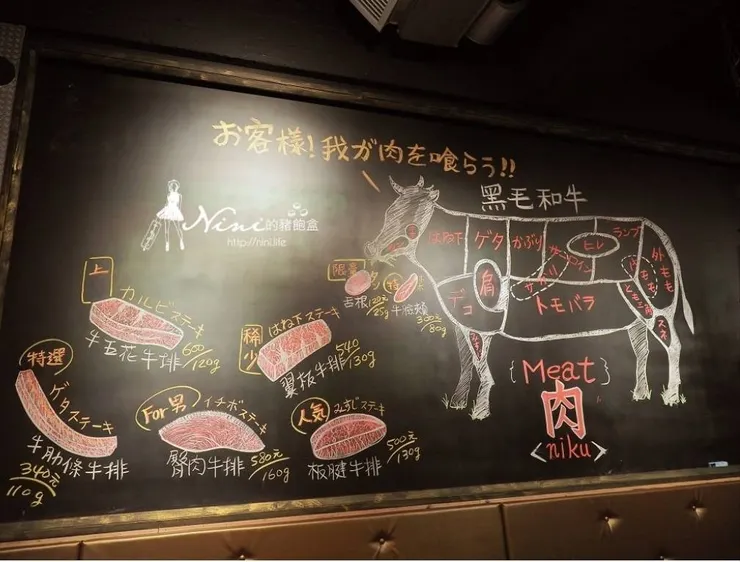 お客様!我が肉を喰らう!!
黑毛和牛
Nini的豬飽盒
http://nini.life
上
カルビステーキ
牛五花牛排
600元/120g
限量
舌根
120元/25g
特
牛臉頰
300元/80g
稀少
はね下ステーキ
翼板牛排
540/130g
特選
ゲタステーキ
牛肋條牛排
340元
110g
For男
イチボステーキ
臀肉牛排
580元/160g
人気
みすじステーキ
板腱牛排
500元/130g
はね下
ゲタ
かぶり
サーロイン
ヒレ
ランプ
外もも
肩
サガリ
トモバラ
スネ
{Meat}
肉
<niku>